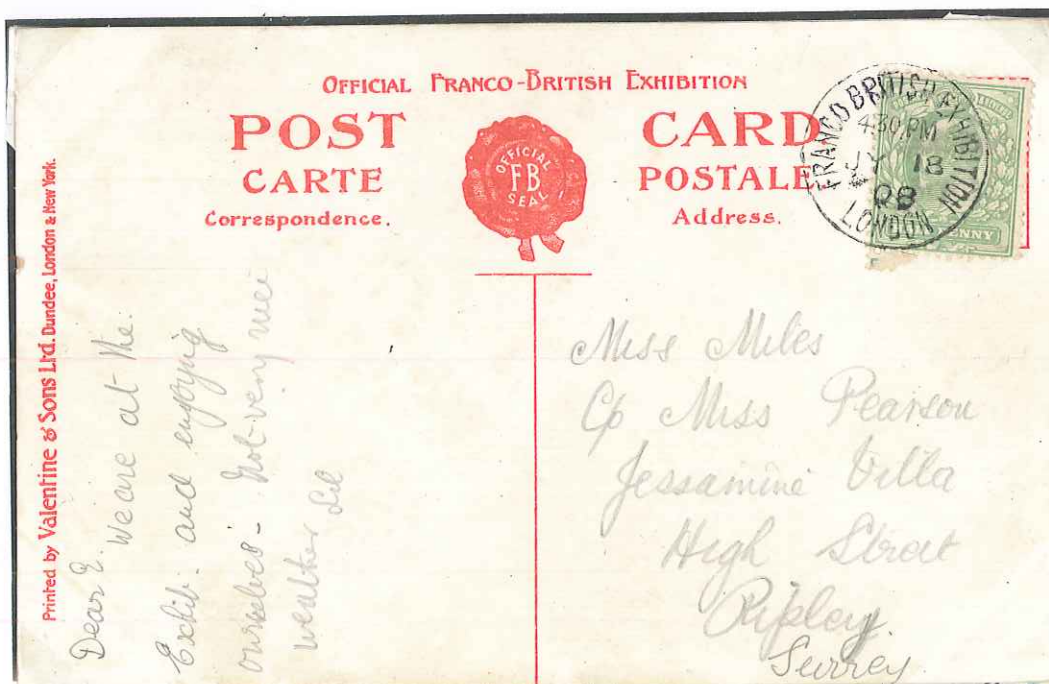 OFFICIAL FRANCO-BRITISH EXHIBITION
POST CARD
CARTE POSTALE
Correspondence. Address.
OFFICIAL
FB
SEAL
FRANCO BRITISH EXHIBITION
4.30 PM
JY 18
08
LONDON
Printed by Valentine & Sons Ltd. Dundee, London & New York.
Dear E.
We are at the
Exhib- and enjoying
ourselves - Not very nice
weather Lil
Miss Miles
C/o Miss Pearson
Jessamine Villa
High Street
Ripley
Surrey